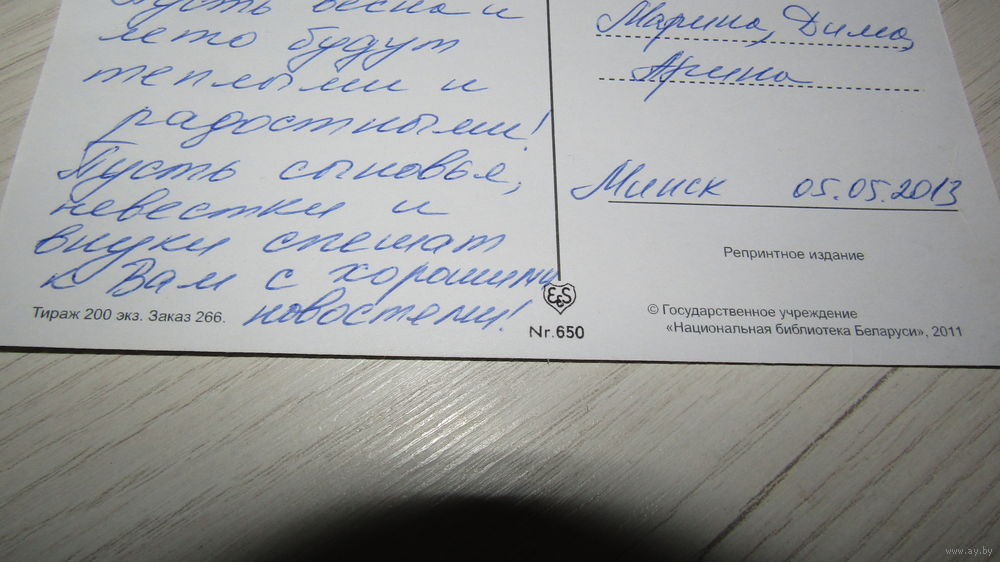 Пусть весна и
лето будут
теплыми и
радостными!
Пусть сыновья,
невестки и
внуки спешат
к Вам с хорошими
новостями!
Тираж 200 экз. Заказ 266.
Марина, Дима,
Арина
Минск 05.05.2013
Репринтное издание
E&S
Nr. 650
© Государственное учреждение
«Национальная библиотека Беларуси», 2011
www.ay.by